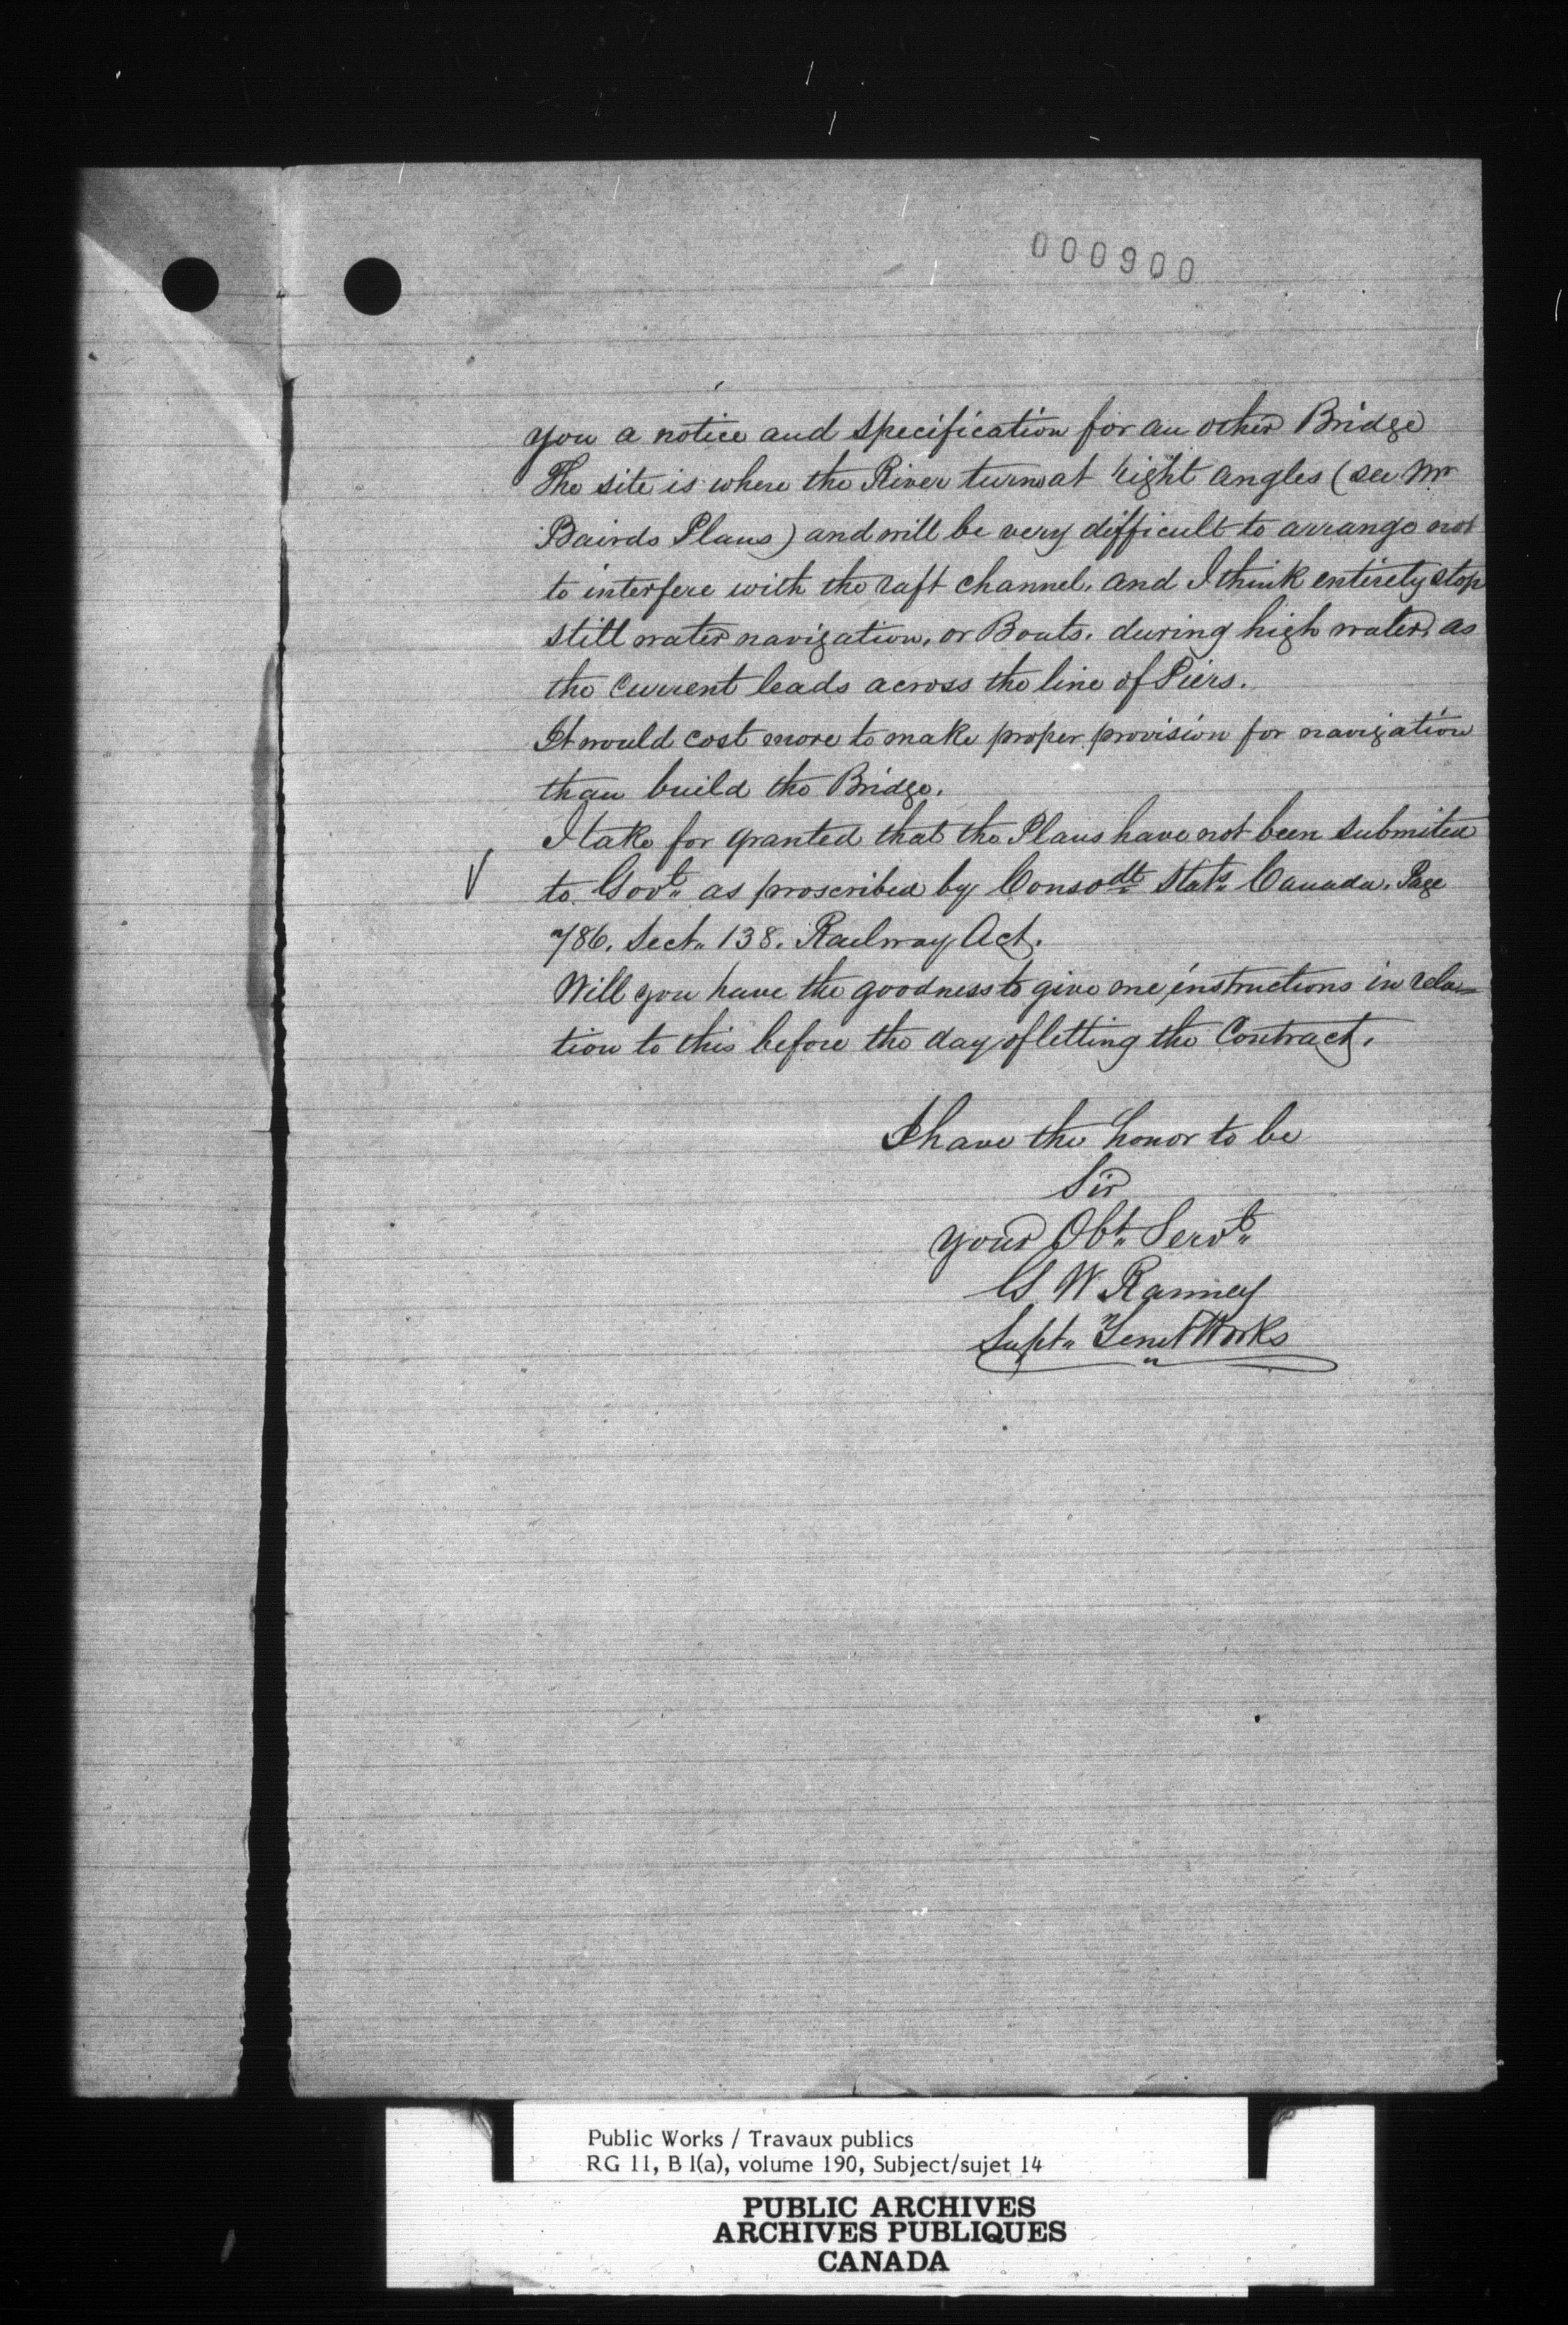 000900
you a notice and specification for an other Bridge
The site is where the River turns at right angles (see Mr
Bairds Plans) and will be very difficult to arrange not
to interfere with the raft channel. and I think entirely stop
still water navigation, or Boats. during high water, as
the current leads across the line of Piers.
It would cost more to make proper provision for navigation
than build the Bridge.
I take for granted that the Plans have not been submited
to Govt. as proscribed by Consodt Stats. Canada. Page
786. Sect. 138. Railway Act.
Will you have the goodness to give me instructions in rela=
tion to this before the day of letting the Contract.
I have the honor to be
Sir
your Obt. Servt.
G W Ranney
Supt. Trent Works
Public Works / Travaux publics
RG 11, B 1(a), volume 190, Subject/sujet 14
PUBLIC ARCHIVES
ARCHIVES PUBLIQUES
CANADA